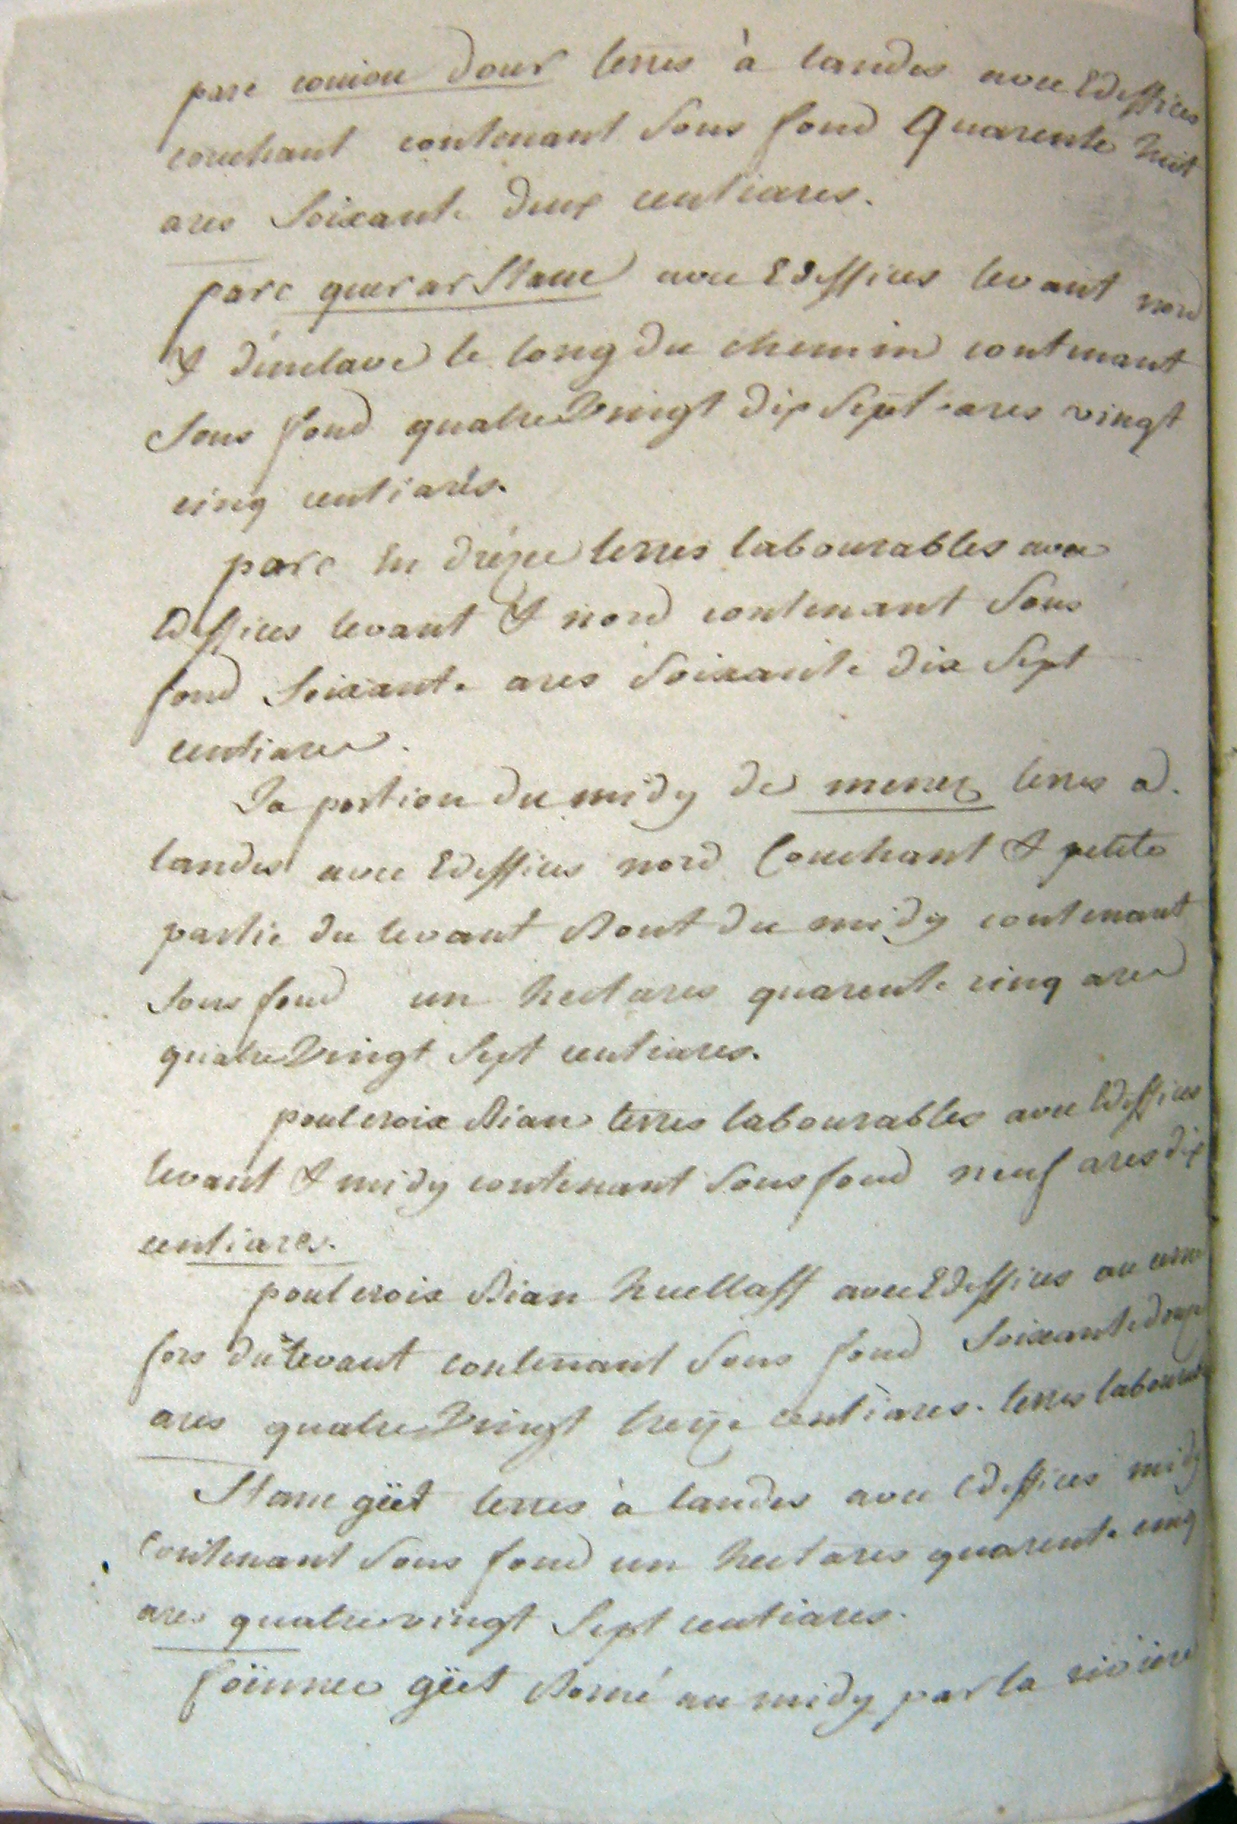 parc couiou dour terres à landes avec Edeffices
couchant contenant Sous fond Quarente huit
ares Soixante deux centiares.
parc querar Stanc avec Edeffices levant nord
& d'enclave le long du chemin contenant
Sous fond quatre Vingt dix Sept ares vingt
cinq centiares.
parc En dréze terres labourables avec
Edeffices levant & nord contenant Sous
fond Soixante ares Soixante dix Sept
centiares.
La portion du midy de menez terres a
landes avec Edeffices nord Couchant & petite
partie du levant Bout du midy contenant
Sous fond un hectares quarente cinq ares
quatre Vingt Sept centiares.
poulcroix Bian terres labourables avec Edeffices
levant & midy contenant Sous fond neuf ares dix
centiares.
poulcroix Bian huellaff avec Edeffices au cerne
fors du levant contenant Sous fond Soixante douze
ares quatre Vingt treize centiares. terres labourables
Stanc güet terres à landes avec Edeffices midy
Contenant Sous fond un hectares quarente cinq
ares quatre vingt Sept centiares.
foünnec güet Borné au midy par la rivière